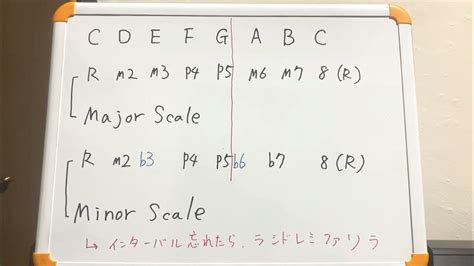 C D E F G A B C
R m2 m3 p4 p5 m6 m7 8 (R)
Major Scale
R m2 b3 p4 p5 b6 b7 8 (R)
Minor Scale
↳ インターバル忘れたら、ラシドレミファソラ